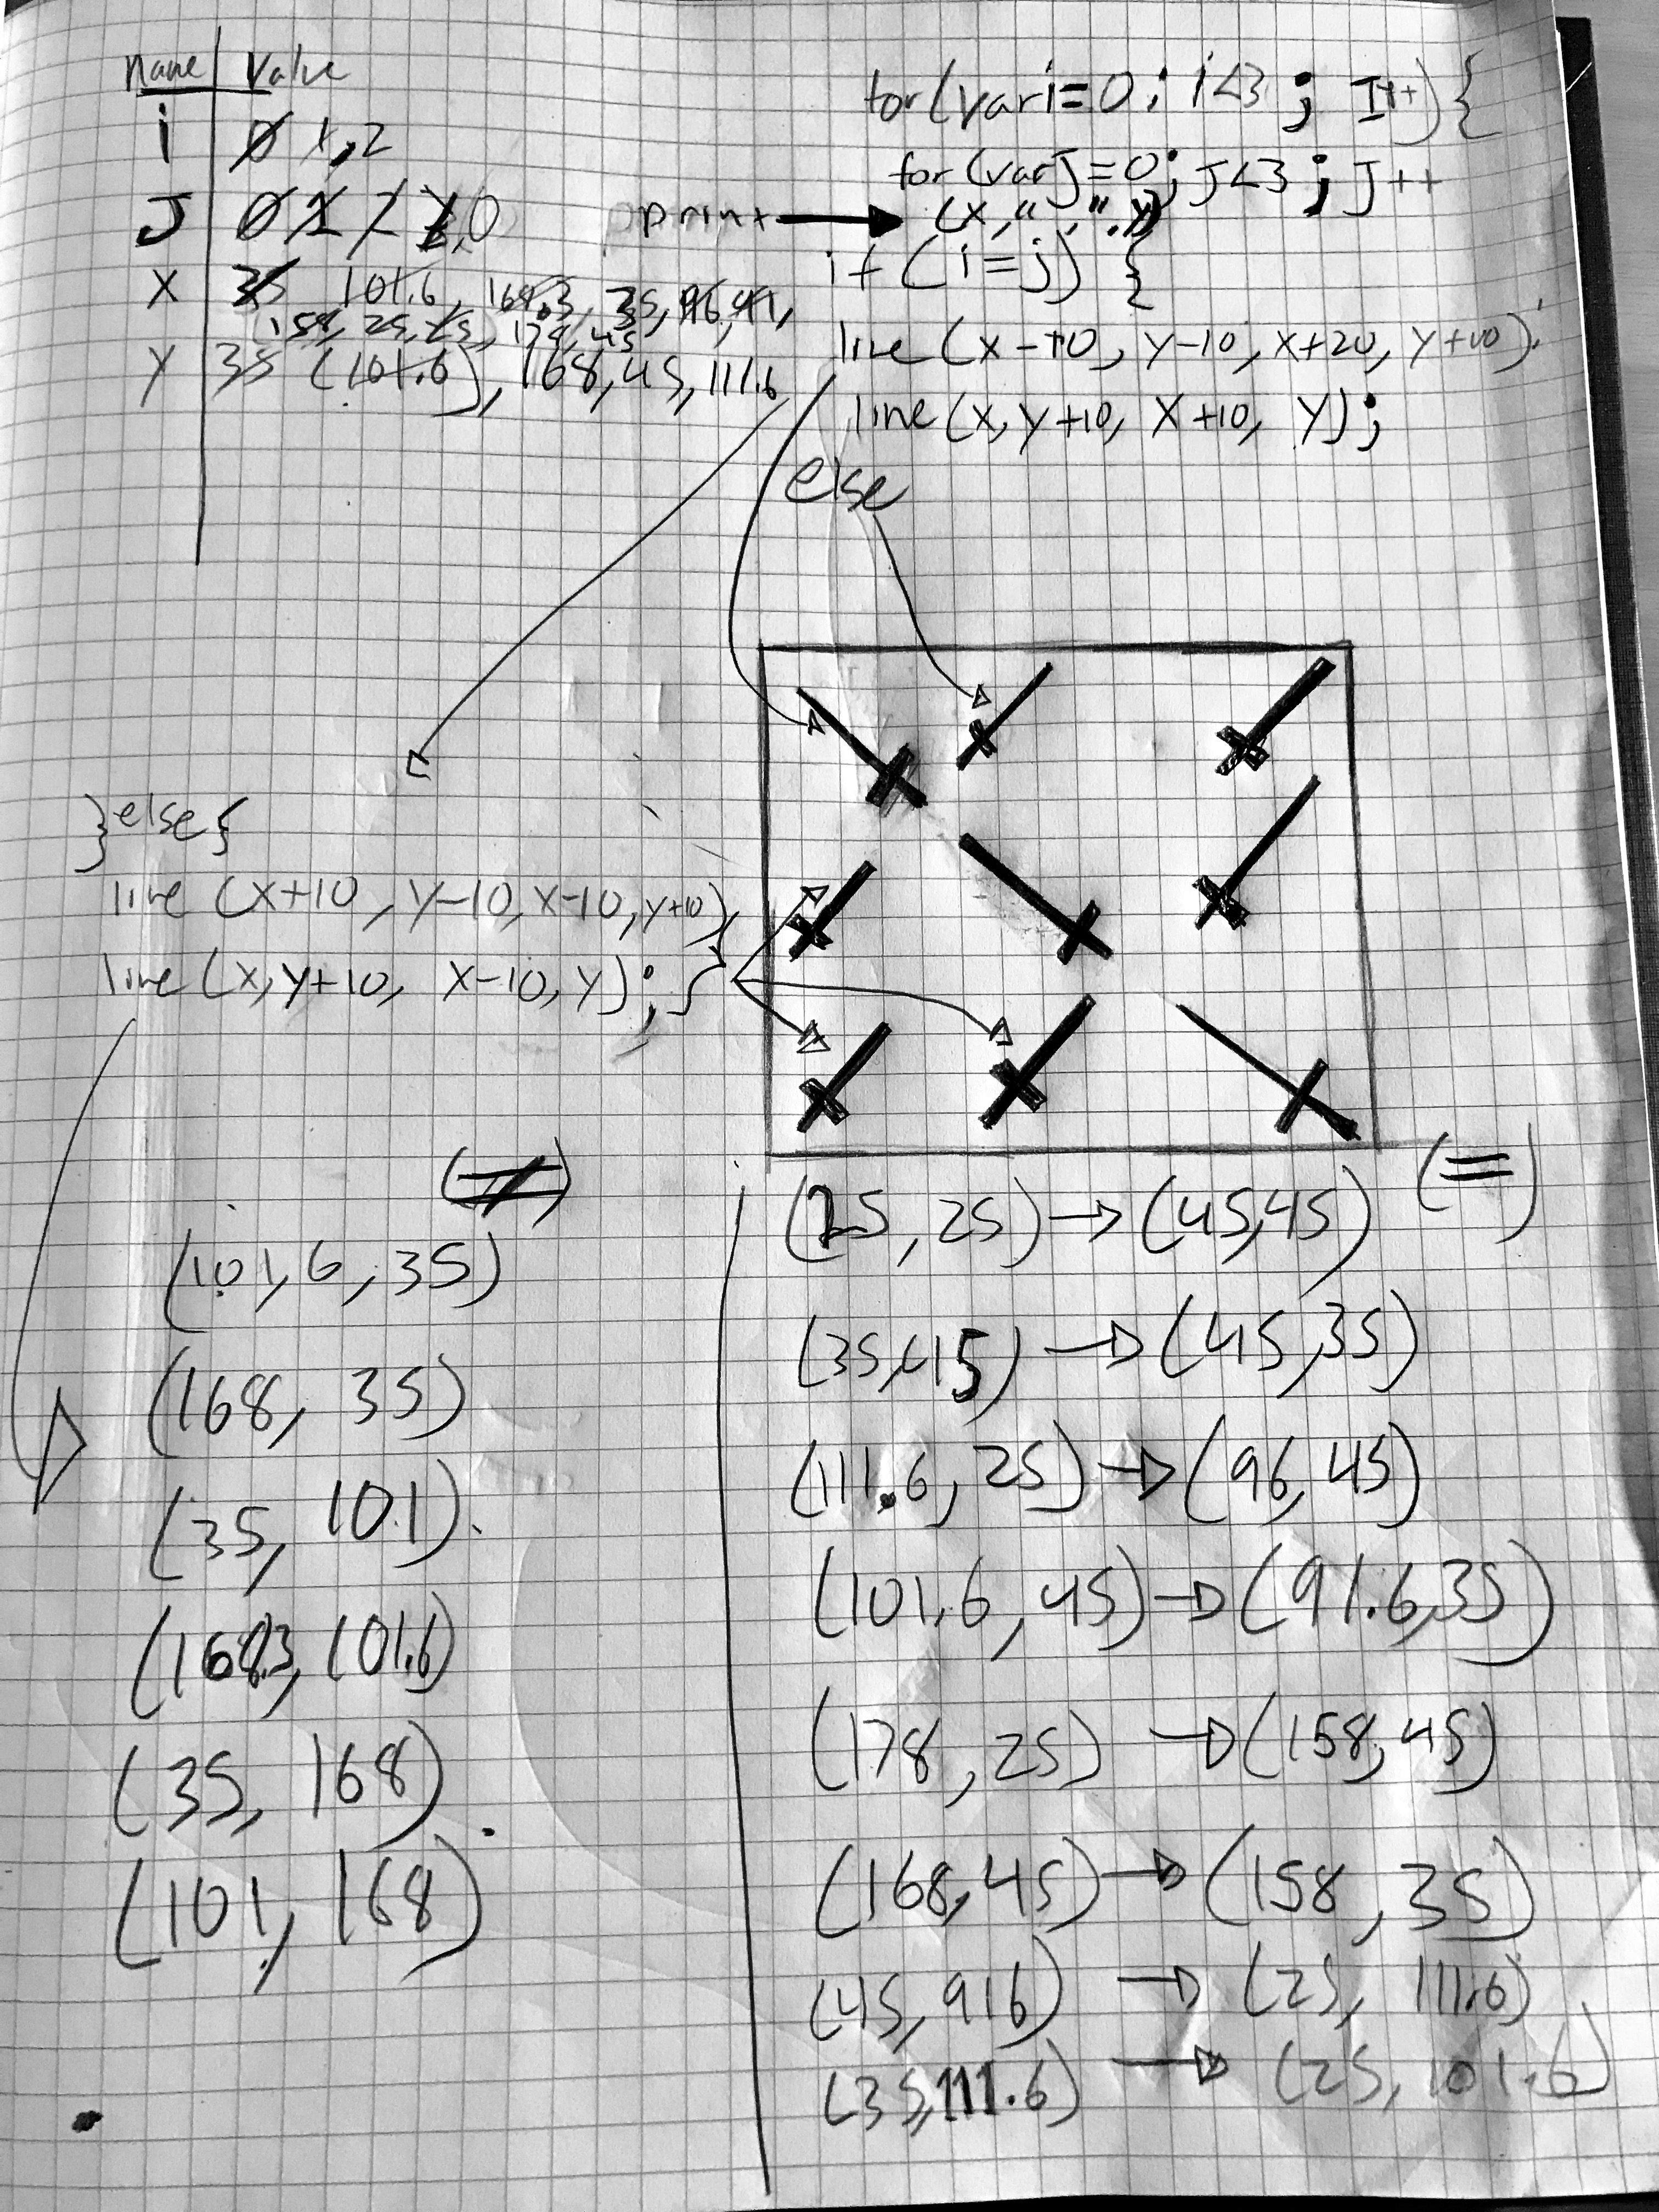 Name Value
i 0 1, 2
J 0 1 2 1, 0
X 35 101.6, 168.3, 35, 96, 91,
158, 25, 25, 178, 45
Y 35 (101.6), 168, 45, 111.6
for (var i=0; i<3; I++) {
for (var J=0; J<3; J++
print (x, "," , y)
if (i=j) {
line (x-10, y-10, x+20, y+10);
line (x, y+10, x+10, y);
else
}else{
line (x+10, y-10, x-10, y+10),
line (x, y+10, x-10, y); }
(≠)
(101,6, 35)
(168, 35)
(35, 10.1).
(168.3, 101.6)
(35, 168).
(101, 168)
(25, 25) → (45,45) (=)
(35,45) → (45,35)
(111.6, 25) → (96, 45)
(101.6, 45) → (91.6,35)
(178, 25) → (158, 45)
(168, 45) → (158, 35)
(45, 916) → (25, 111.6)
(35,111.6) → (25, 101.6)